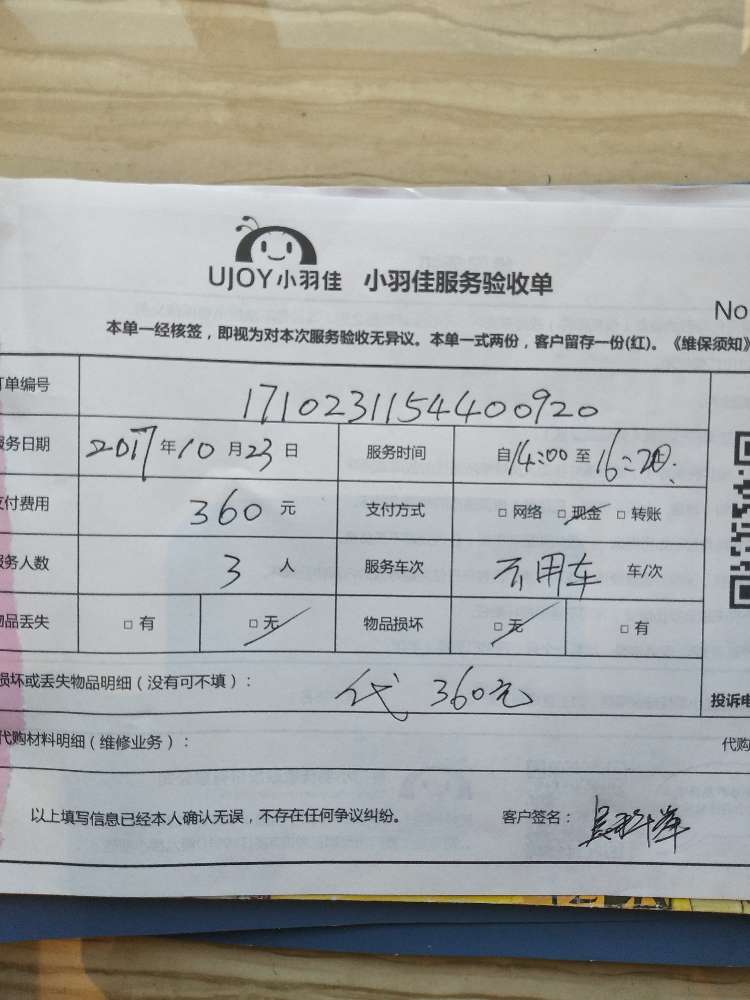 UJOY小羽佳 小羽佳服务验收单
No
本单一经核签，即视为对本次服务验收无异议。本单一式两份，客户留存一份(红)。《维保须知》
订单编号 1710231154400920
服务日期 2017年10月23日 服务时间 自14:00至16:20
支付费用 360元 支付方式 □网络 □现金 □转账
服务人数 3人 服务车次 不用车 车/次
物品丢失 □有 □无 物品损坏 □无 □有
损坏或丢失物品明细（没有可不填）： 代 360元
投诉电
代购材料明细（维修业务）： 代购
以上填写信息已经本人确认无误，不存在任何争议纠纷。 客户签名：